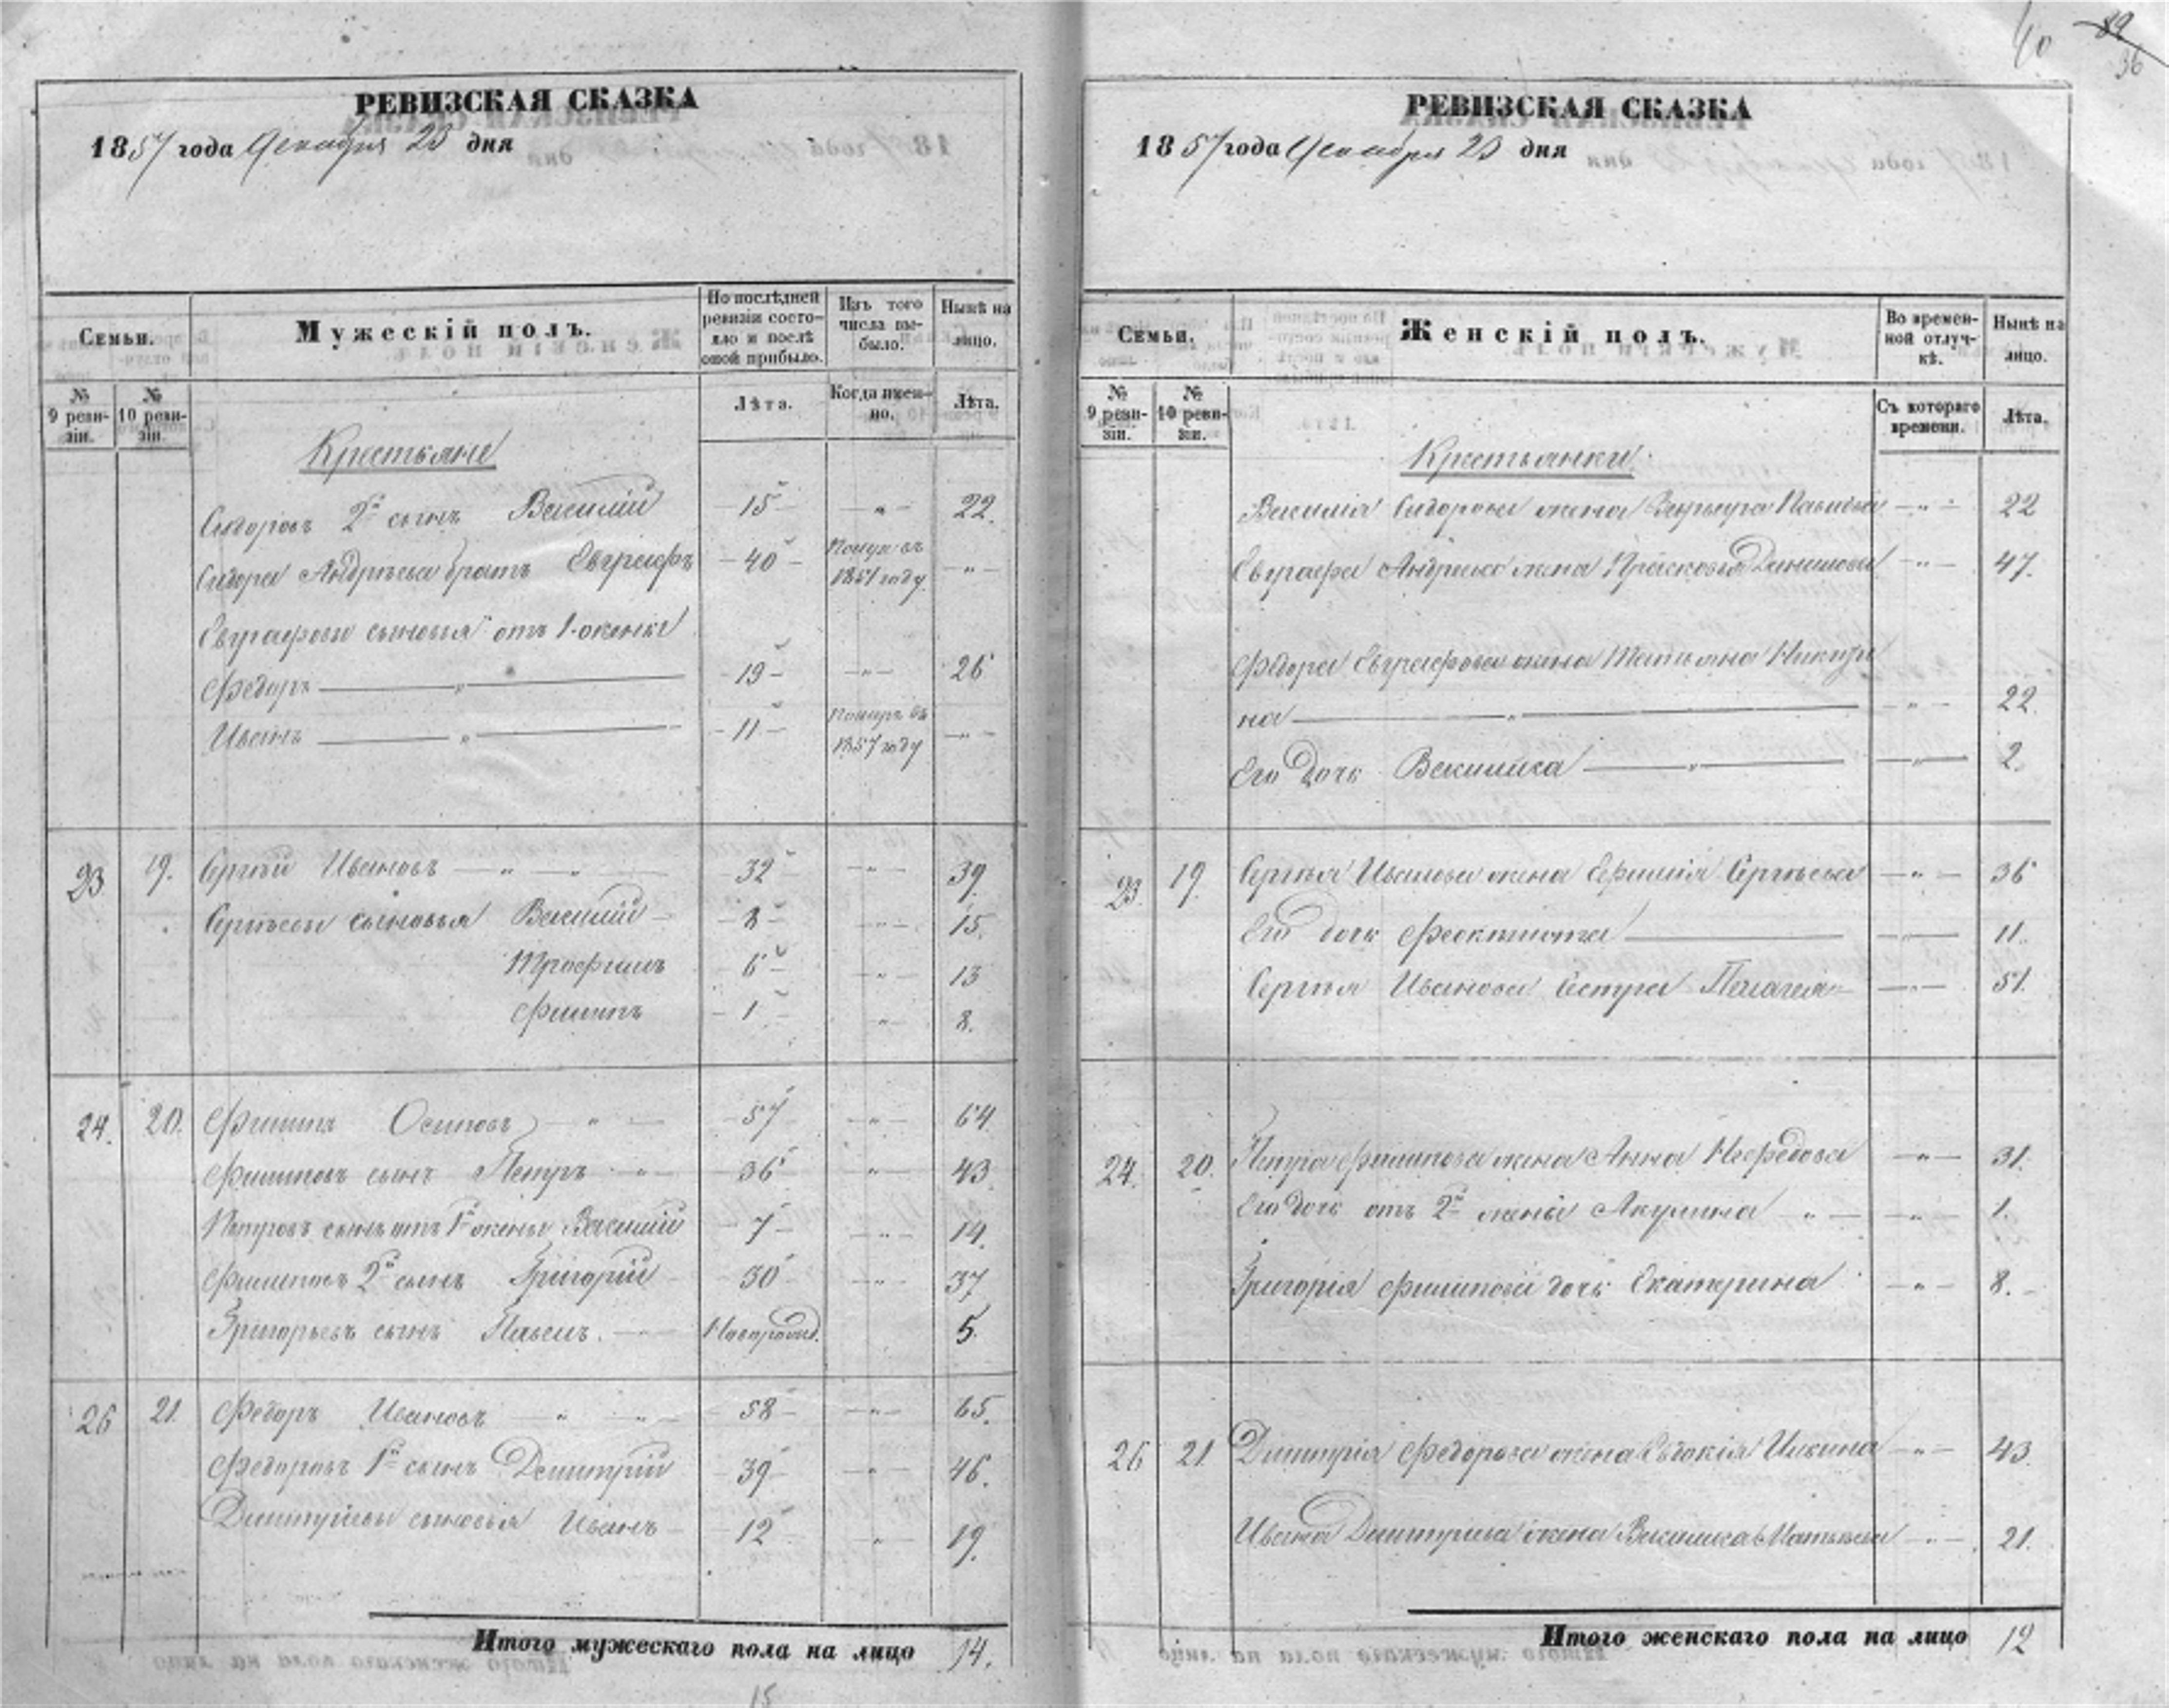 40 89
36
РЕВИЗСКАЯ СКАЗКА
1857 года Декабря 23 дня
Семьи.
Мужескій полъ.
По послѣдней ревизіи состояло и послѣ оной прибыло.
Изъ того числа выбыло.
Нынѣ на лицо.
№ 9 ревизіи.
№ 10 ревизіи.
Лѣта.
Когда именно.
Лѣта.
Крестьяне
Сидоровъ 2й сынъ Василій 15 — " — 22.
Сидора Андреева братъ Евграфъ 40 1851 году — " —
Евграфовы сыновья отъ 1 жены
Федоръ — " — 19 — " — 26
Иванъ — " — 11 Померъ въ 1857 году — " —
23 19. Сергѣй Ивановъ — " — 32 — " — 39.
Сергѣевы сыновья Василій 8 — " — 15.
Трофимъ 6 — " — 13
Филипъ 1 " 8.
24. 20. Филипъ Осиповъ — " — 57 — " — 64
Филиповъ сынъ Петръ — " — 36 " 43
Петровъ сынъ отъ 1й жены Василій 7 — " — 14.
Филиповъ 2й сынъ Григорій 30 " 37
Григорьевъ сынъ Павелъ. — Новорожд. 5.
26 21 Федоръ Ивановъ " — " — 58 — " — 65.
Федоровъ 1й сынъ Дмитрій 39 — " — 46.
Дмитріевы сыновья Иванъ 12 " 19.
Итого мужескаго пола на лицо 14.
15
РЕВИЗСКАЯ СКАЗКА
1857 года Декабря 23 дня
Семьи.
Женскій полъ.
Во временной отлучкѣ.
Нынѣ на лицо.
№ 9 ревизіи.
№ 10 ревизіи.
Съ котораго времени.
Лѣта.
Крестьянки
Василія Сидорова жена — " — 22
Евграфа Андреева жена Прасковья Данилова — " — 47.
Федора Евграфова жена Татьяна Никити
на — " — — " — 22.
Его дочь Василиса — " — — " — 2.
23. 19. Сергѣя Иванова жена Сергѣева — " — 36
Его дочь Феоктиста — " — 11.
Сергѣя Иванова сестра Пелагея — " — 51.
24. 20. Петра Филипова жена Анна Нефедова — " — 31.
Его дочь отъ 2й жены Акулина " — — " — 1.
Григорія Филипова дочь Екатерина — " — 8.
26 21. Дмитрія Федорова жена Евдокія — " — 43.
Ивана Дмитріева жена Василиса — " — 21.
Итого женскаго пола на лицо 12